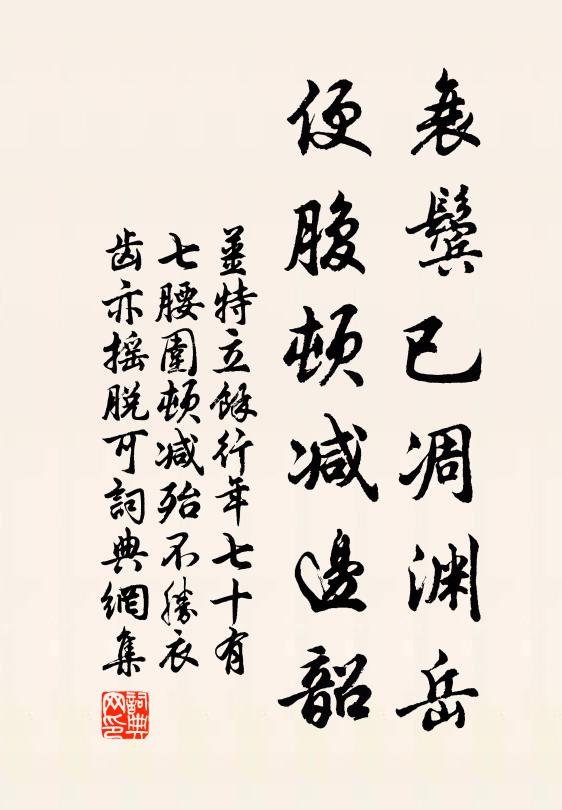 衰鬓已凋渊岳
便腹顿减边韶
姜特立馀行年七十有
七腰围顿减殆不胜衣
齿亦摇脱可词典网集
词典网印